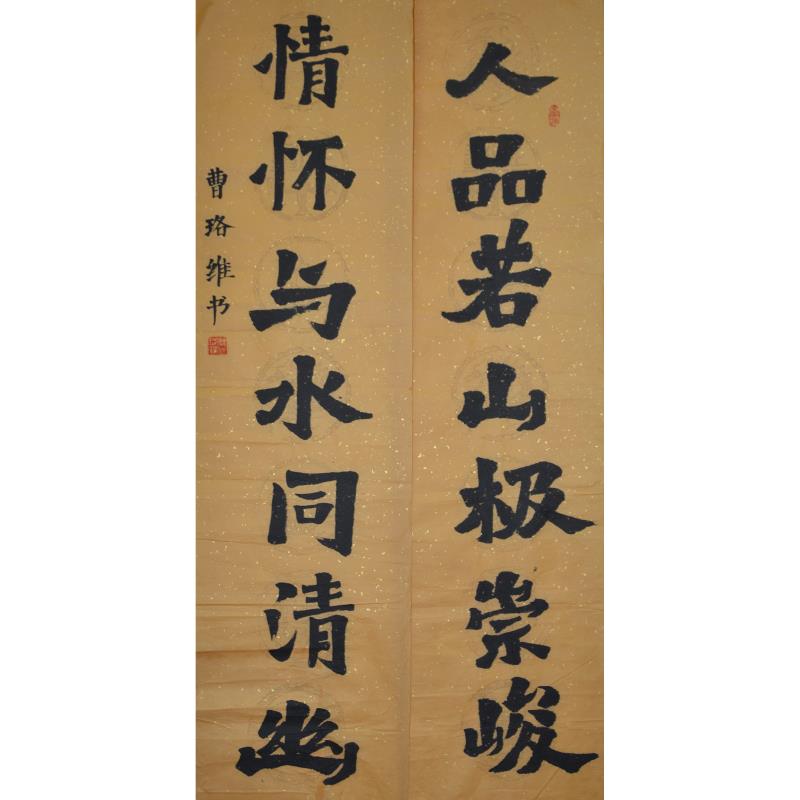 人品若山极崇峻
情怀与水同清幽
曹珞维书